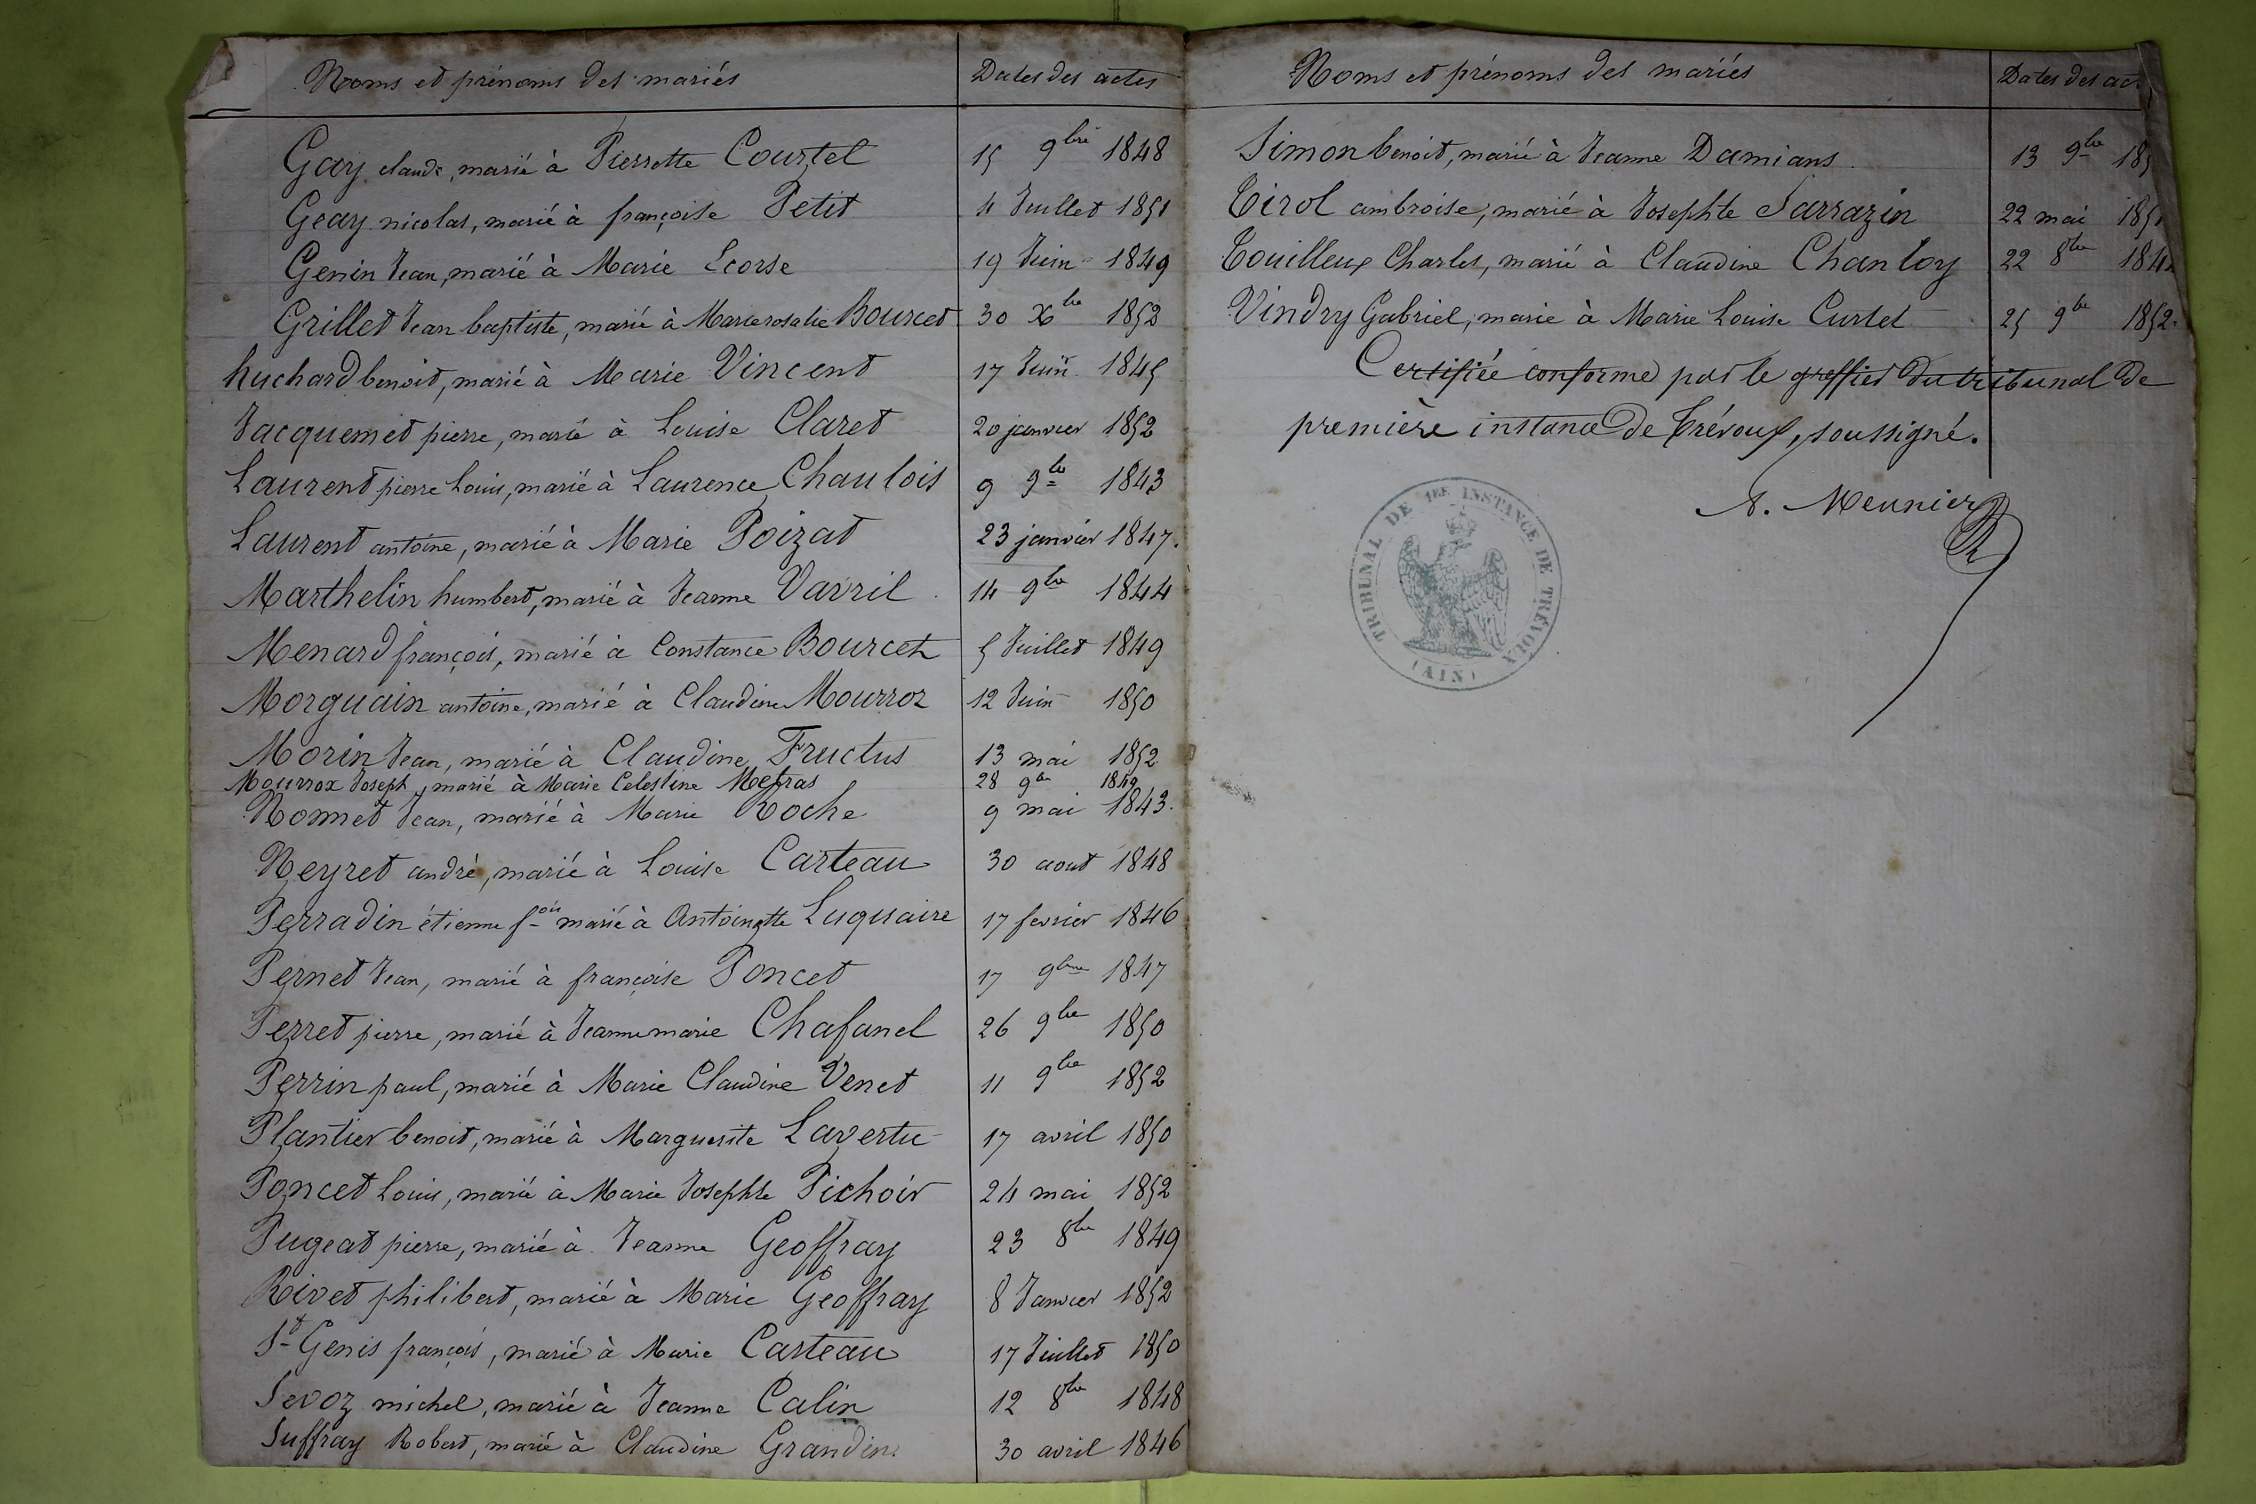 Noms et prénoms des mariés Dates des actes
Gay claude, marié à Pierrette Courtel 15 9bre 1848
Geay nicolas, marié à françoise Petit 4 Juillet 1851
Genin Jean, marié à Marie Ecorse 19 Juin 1849
Grillet Jean baptiste, marié à Marie rosalie Bourcet 30 Xbre 1852
huchard benoit, marié à Marie Vincent 17 Juin 1845
Jacquemet pierre, marié à Louise Claret 20 janvier 1852
Laurent pierre Louis, marié à Laurence Chaulois 9 9bre 1843
Laurent antoine, marié à Marie Poizat 23 janvier 1847.
Marthelin humbert, marié à Jeanne Vavril 14 9bre 1844
Menard françois, marié à Constance Bourcet 5 Juillet 1849
Morguain antoine, marié à Claudine Mourroz 12 Juin 1850
Morin Jean, marié à Claudine Fructus 13 mai 1852
Mourrox Joseph, marié à Marie Celestine Metras 28 9bre 1849
Nomet Jean, marié à Marie Roche 9 mai 1843.
Neyret andré, marié à Louise Carteau 30 aout 1848
Perradin étienne fois marié à Antoinette Luquaire 17 fevrier 1846
Pernet Jean, marié à françoise Poncet 17 9bre 1847
Perret pierre, marié à Jeanne marie Chafanel 26 9bre 1850
Perrin paul, marié à Marie Claudine Venet 11 9bre 1852
Plantier benoit, marié à Marguerite Lavertu 17 avril 1850
Poncet Louis, marié à Marie Josephte Pichoir 24 mai 1852
Pugeat pierre, marié à Jeanne Geoffray 23 8bre 1849
Rivet philibert, marié à Marie Geoffray 8 Janvier 1852
St Genis françois, marié à Marie Carteau 17 Juillet 1850
Sevoz michel, marié à Jeanne Calin 12 8bre 1848
Suffray Robert, marié à Claudine Grandin 30 avril 1846
Noms et prénoms des mariés Dates des ac
Simon benoit, marié à Jeanne Damians 13 9bre 185
Tirol ambroise, marié à Josephte Sarrazin 22 mai 185
Touilleux Charles, marié à Claudine Chanloy 22 8bre 184
Vindry Gabriel, marié à Marie Louise Curtet 25 9bre 1852.
Certifiée conforme par le greffier du tribunal de
première instance de Trévoux, soussigné.
A. Meunier
TRIBUNAL DE 1ERE INSTANCE DE TRÉVOUX
(AIN)